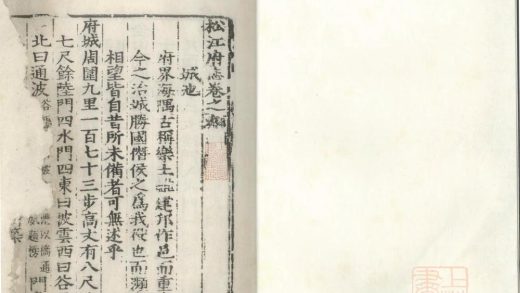 松江府志卷之
城池
府界海隅古稱樂土建邦作邑而重
今之治城勝國僭侯之爲我役也而瀕
相望皆自昔所未備者可無述乎
府城周圍九里一百七十三步高丈有八尺
七尺餘陸門四水門四東曰披雲西曰谷
北曰通波